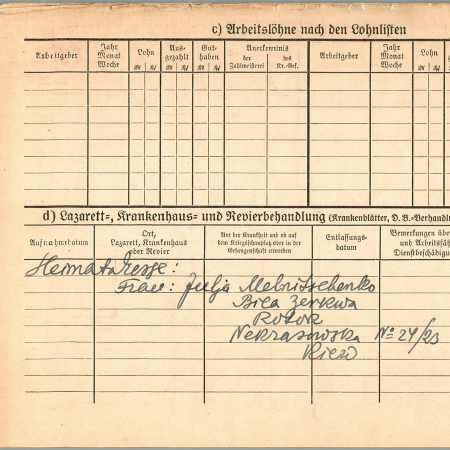 c) Arbeitslöhne nach den Lohnlisten
Arbeitgeber
Jahr
Monat
Woche
Lohn
Aus-
gezahlt
Gut-
haben
Anerkenntnis
der
Zahlmeisterei
des
Kr.-Gef.
Arbeitgeber
Jahr
Monat
Woche
Lohn
d) Lazarett-, Krankenhaus- und Revierbehandlung (Krankenblätter, D. B.-Verhandl
Aufnahmedatum
Ort,
Lazarett, Krankenhaus
oder Revier
Art der Krankheit und ob auf
dem Kriegsschauplatz oder in der
Gefangenschaft erworben
Entlassungs-
datum
Bemerkungen übe
und Arbeitsfäh
Dienstbeschädigu
Heimatadresse:
Frau: Julja Melnitschenko
Bila Zerkwa
Rotok
Nekrasowska № 24/23
Kiew